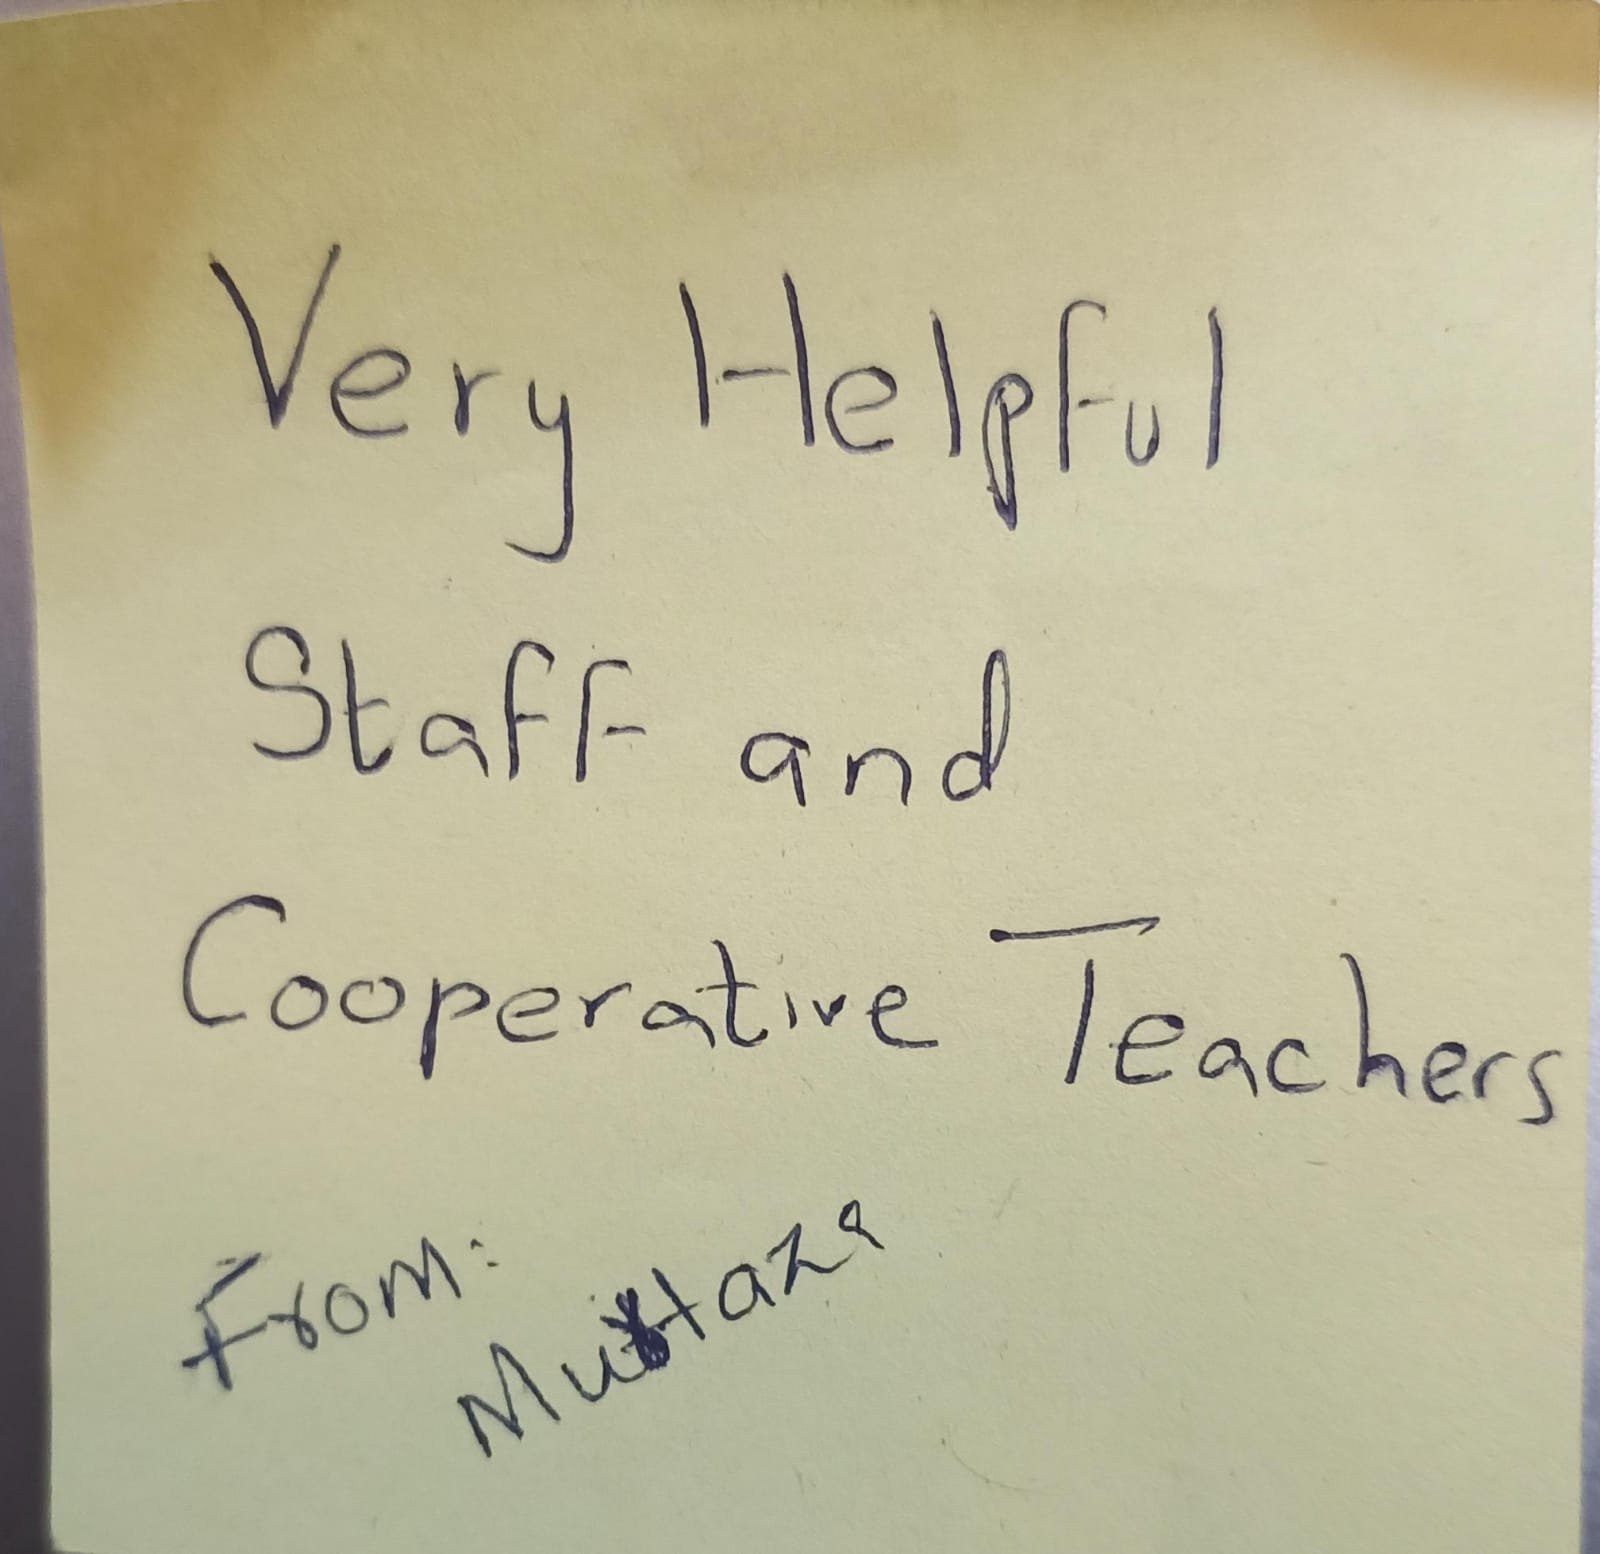 Very Helpful
Staff and
Cooperative Teachers
From: